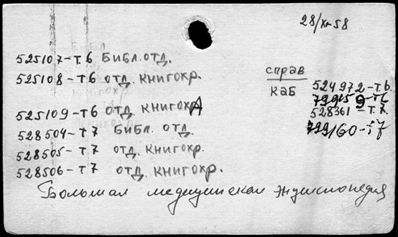 28/XI-58
525107-т.6 Библ. отд.
525108-т6 отд. книгохр.
525109-т6 отд книгохрА
528504-т7 Библ. отд
528505-т7 отд. книгохр.
528506-т.7 отд. книгохр.
справ
каб
524972-т.6
528361-т.7.
Большая медицинская энциклопедия